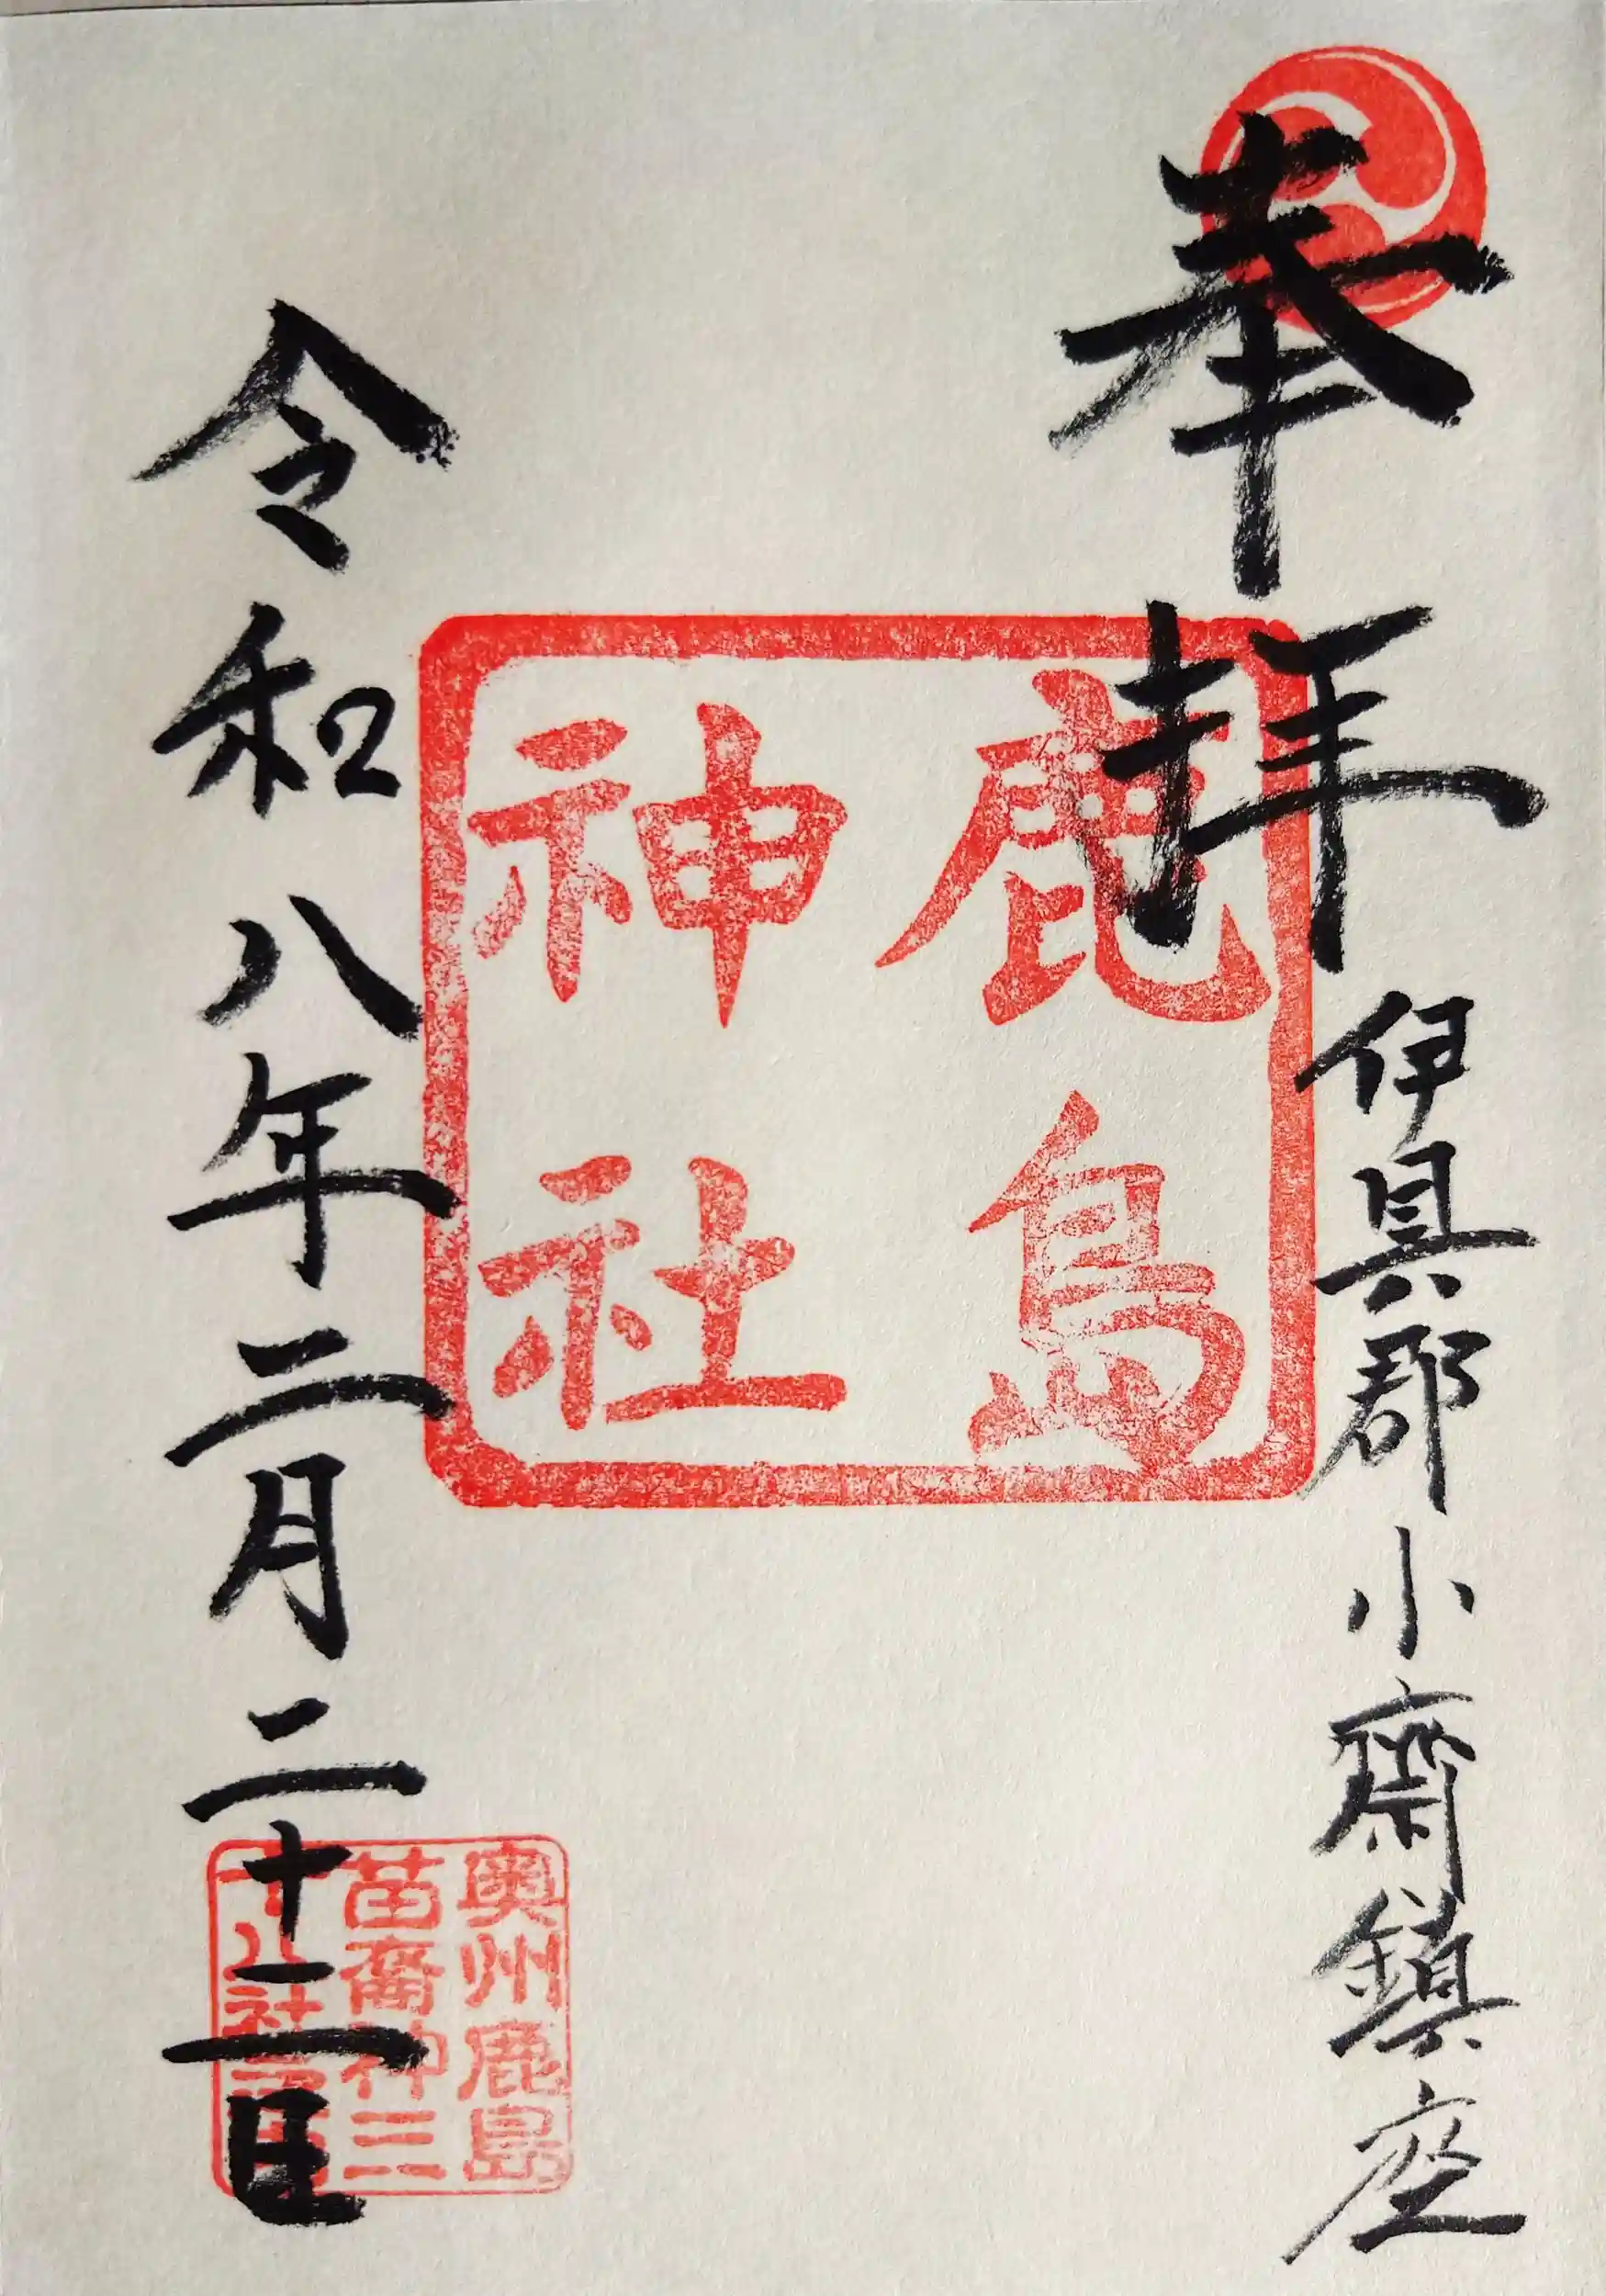 奉拝
伊具郡小齋鎮座
鹿島
神社
令和八年二月二十二日
奥州鹿島
苗裔神三
十八社